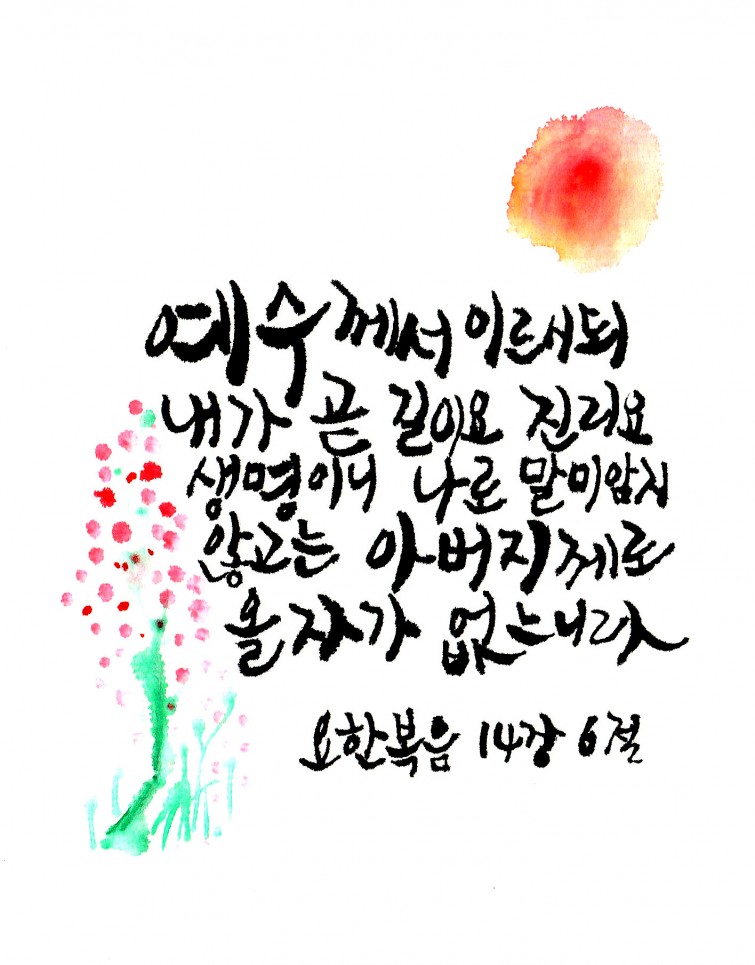 예수께서 이르시되
내가 곧 길이요 진리요
생명이니 나로 말미암지
않고는 아버지께로
올 자가 없느니라
요한복음 14장 6절